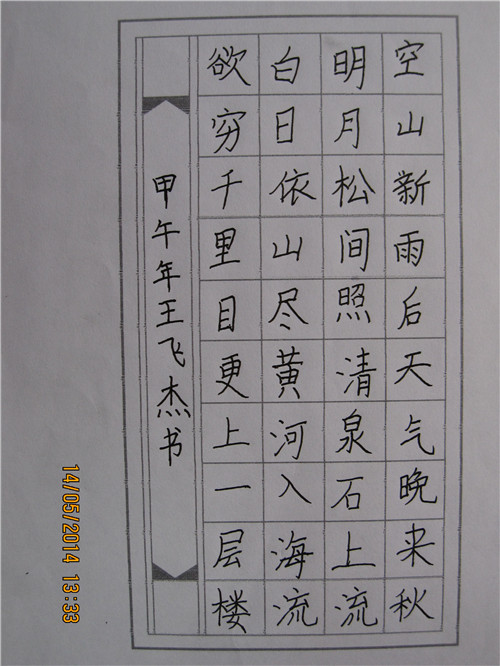 空山新雨后天气晚来秋
明月松间照清泉石上流
白日依山尽黄河入海流
欲穷千里目更上一层楼
甲午年王飞杰书
14/05/2014 13:33